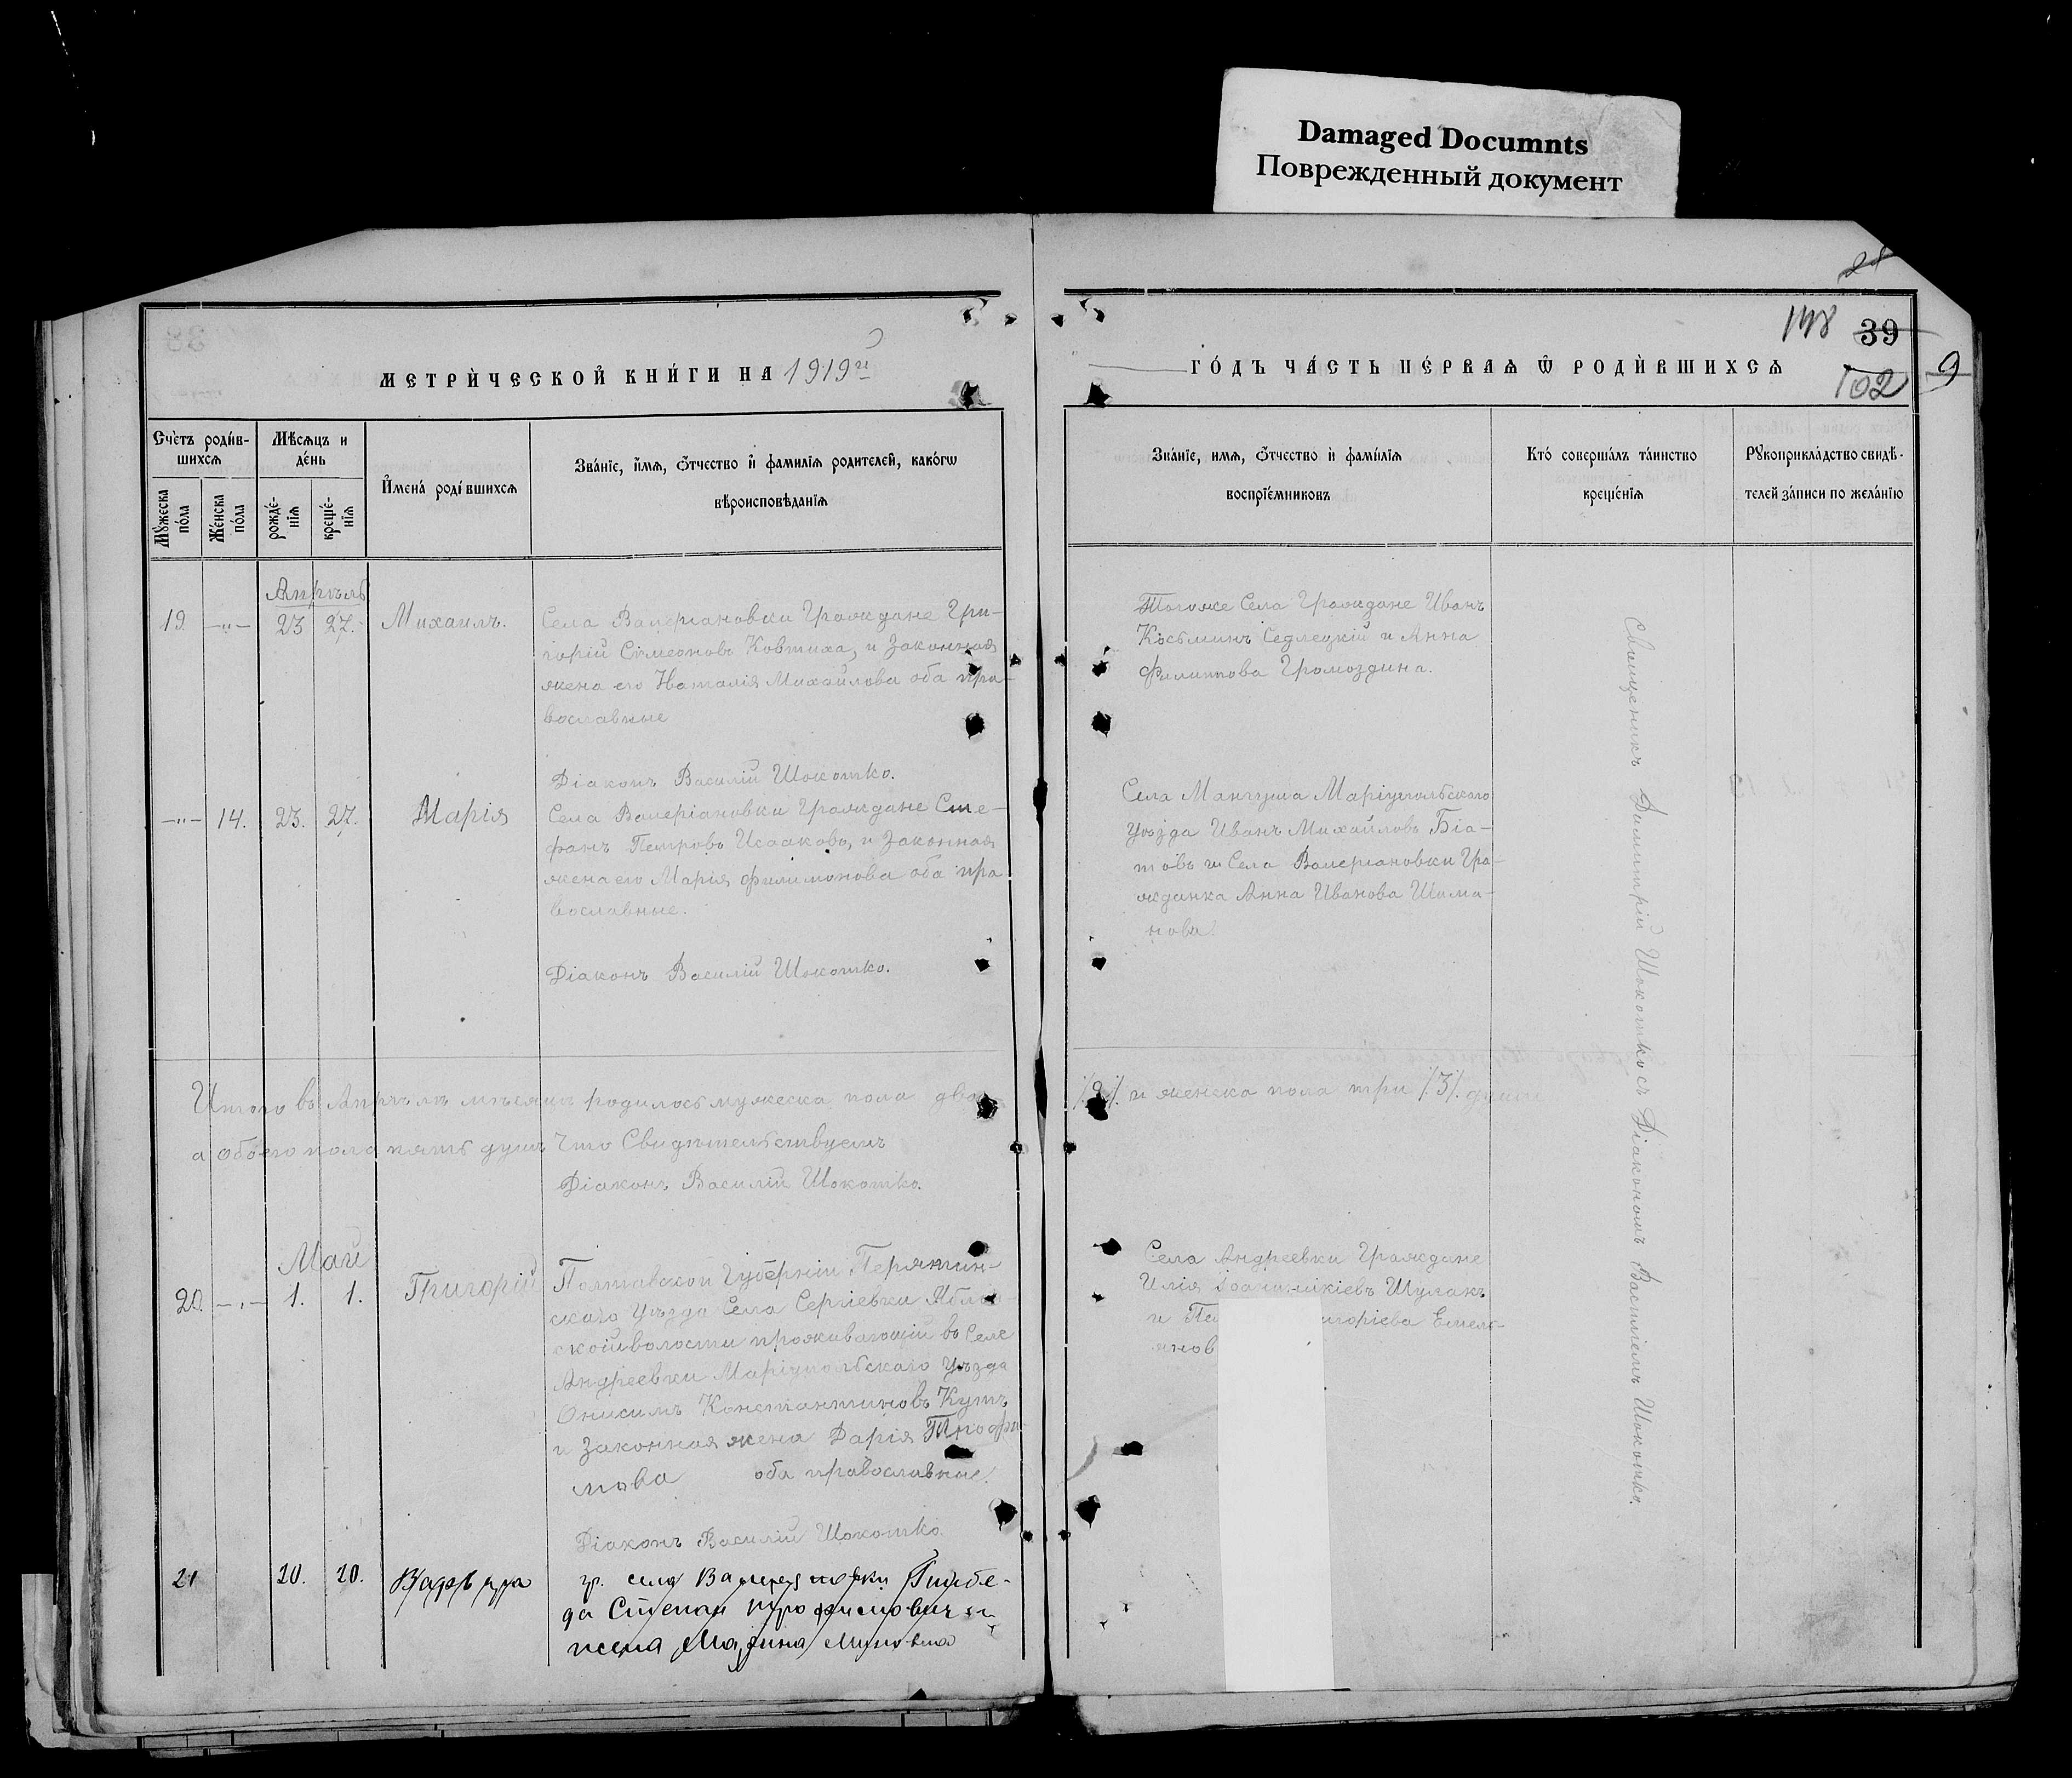 Damaged Documnts
Поврежденный документ
148
39
102
9
МЕТРИ́ЧЕСКОЙ КНИ́ГИ НА 1919й
ГО́ДЪ ЧА́СТЬ ПЕ́РВАѦ Ѿ РОДИ́ВШИХСѦ
Сче́тъ роди́в-
шихсѧ
Мѣ́сѧцъ и
де́нь
Мꙋ́жеска
по́ла
Же́нска
по́ла
рожде́-
нїѧ
креще́-
нїѧ
И҆мена́ роди́вшихсѧ
Зва́нїе, и҆́мѧ, ѻ҆́тчество и҆ фамилїѧ родителей, како́гѡ
вѣроисповѣ́данїѧ
Зва́нїе, имѧ, ѻ҆́тчество и҆ фами́лїѧ
воспрїе́мниковъ
Кто́ соверша́лъ та́инство
креще́нїѧ
Рꙋкоприкла́дство свидѣ́-
телей за́писи по жела́нїю
Апрѣль
19 —„— 23 27. Михаилъ.
Села Валеріановки Граждане Гри-
горій Сѵмеоновъ Ковтиха, и Законная
жена его Наталія Михайлова оба пра-
вославные
Діаконъ Василій Шокотко.
Тогоже Села Граждане Иванъ
Косьминъ Седлецкій и Анна
Филиппова Громоздина.
—„— 14. 23. 27. Марія
Села Валеріановки Граждане Сте-
фанъ Петровъ Исааковъ, и Законная
жена его Марія Филимонова оба пра
вославные.
Діаконъ Василій Шокотко.
Села Мангуша Маріупольскаго
уѣзда Иванъ Михайловъ Біа-
товъ и Села Валеріановки Гра-
жданка Анна Иванова Шима-
нова
Священникъ Димитрій Шокотко съ Діакономъ Василіемъ Шокотко.
Итого въ Апрѣлѣ мѣсяцѣ родилось мужеска пола два
/.2/. и женска пола три /.3/. души
а обоего пола пять душъ Что Свидѣтельствуемъ
Діаконъ Василій Шокотко.
Май
20. —„— 1. 1. Григорій
Полтавской Губерніи Пирятин-
скаго Уѣзда Села Сергіевки
ской волости проживающій въ Селе
Андреевки Маріупольскаго Уѣзда
Онисимъ Константиновъ Кутъ
и Законная жена Дарія Трофи-
мова оба православные.
Діаконъ Василій Шокотко.
Села Андреевки Граждане
Илія Іоанникіевъ Шулакъ
и Емель-
янов
21 20. 20. Варвара
гр. села Валерьяновки
да Степан Трофимович и
жена Марина